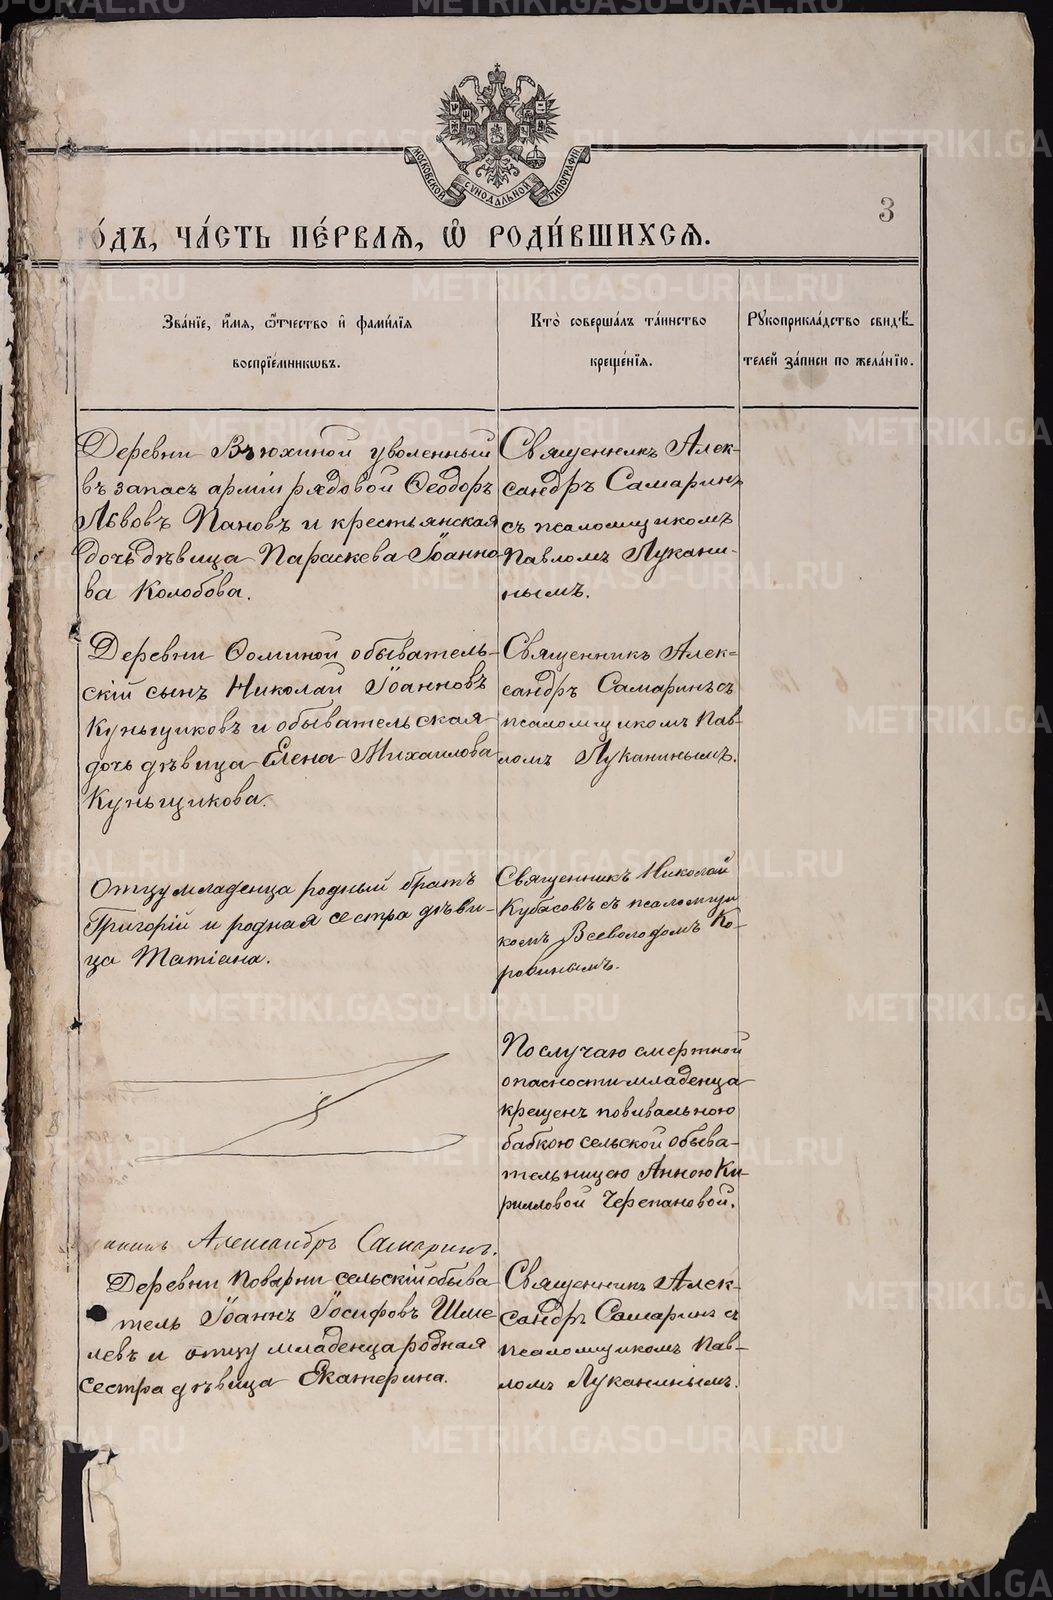 МОСКОВСКОЙ СѴНОДАЛЬНОЙ ТИПОГРАФІИ
3
О́ДЪ, ЧА́СТЬ ПЕ́РВАѦ, Ѡ҆ РОДИ́ВШИХСѦ.
Зва́нїе, и҆́мѧ, ѻ҆́тчество и҆ фами́лїѧ
воспрїе́мникѡвъ.
Кто̀ соверша́лъ та́инство
креще́нїѧ.
Рꙋкоприкла́дство свидѣ́-
телей за́писи по жела́нїю.
Деревни Вьюхиной уволенный
въ запасъ арміи рядовой Ѳеодоръ
Львовъ Пановъ и крестьянская
дочь дѣвица Параскева Іоанно-
ва Колобова.
Священникъ Алек-
сандръ Самаринъ
съ псаломщикомъ
Павломъ Лукани-
нымъ.
Деревни Ѳоминой обыватель-
скій сынъ Николай Іоанновъ
Куньщиковъ и обывательская
дочь дѣвица Елена Михаилова
Куньщикова.
Священникъ Алек-
сандръ Самаринъ съ
псаломщикомъ Пав-
ломъ Луканинымъ.
Отцу младенца родный братъ
Григорій и родная сестра дѣви-
ца Татіана.
Священникъ Николай
Кубасовъ съ псаломщи
комъ Всеволодомъ Ко-
ровинымъ.
По случаю смертной
опасности младенца
крещенъ повивальною
бабкою сельской обыва-
тельницею Анною Ки-
рилловой Черепановой.
Александръ Самаринъ.
Деревни Поварни сельскій обыва
тель Іоаннъ Іосифовъ Шме
левъ и отцу младенца родная
сестра дѣвица Екатерина.
Священникъ Алек-
сандръ Самаринъ съ
псаломщикомъ Пав-
ломъ Луканинымъ.
METRIKI.GASO-URAL.RU